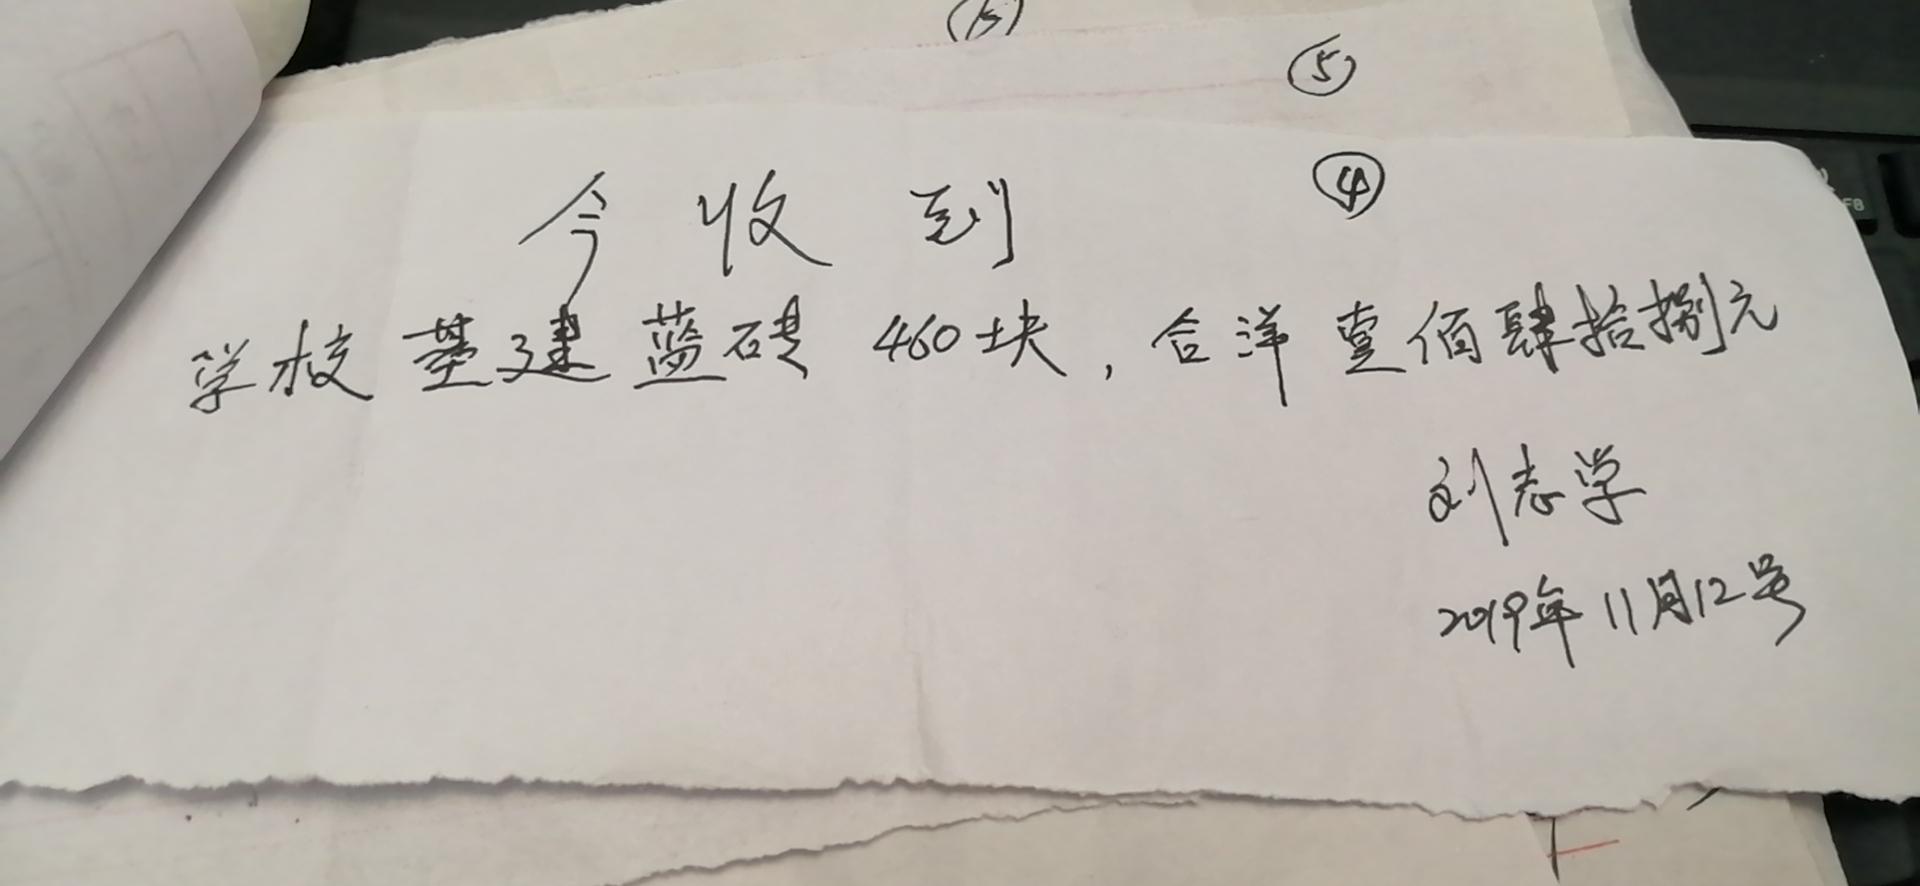 ⑤
④
今收到
学校基建蓝砖460块，合洋壹佰肆拾捌元
刘志学
2019年11月12号
F8